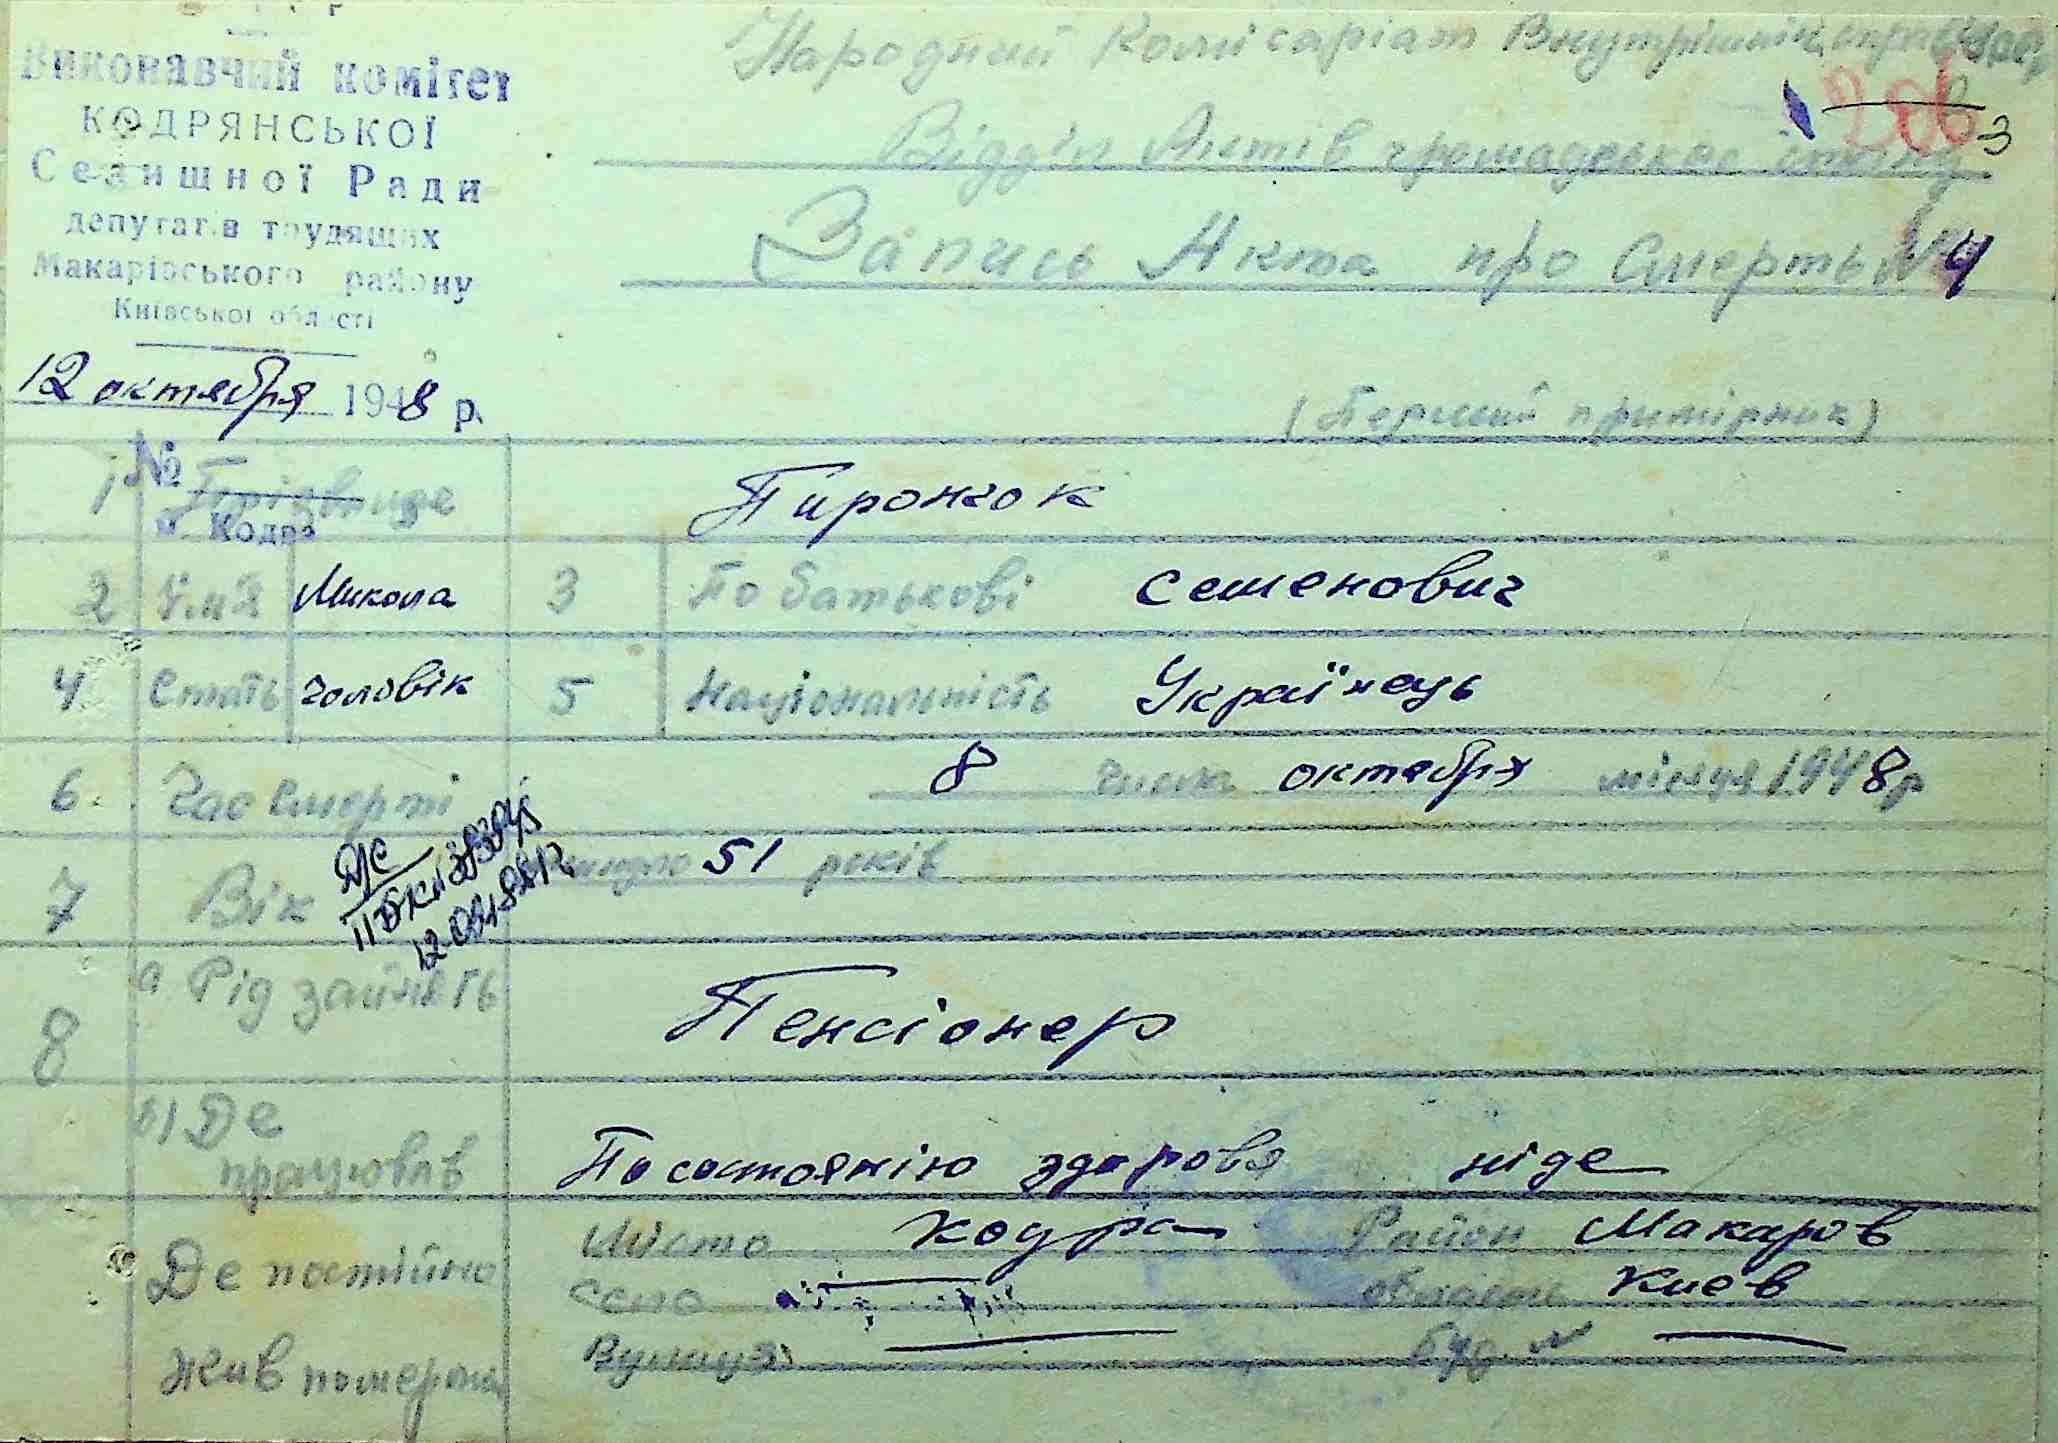 Виконавчий комітет
КОДРЯНСЬКОЇ
Селищної Ради
депутатів трудящих
Макарівського району
Київської області
12 октября 1948 р.
№
м. Кодра
Народний Комісаріат Внутрішніх справ
206
3
Відділ Актів громадського стану
Запись Акта про Смерть № 4
(Перший примірник)
1 Прізвище Пирончок
2 Ім'я Микола 3 По батькові Семенович
4 Стать чоловік 5 Національність Українець
6 Час смерті 8 числа октября місяця 1948 р
7 Вік 51 років
8 а Рід занять Пенсіонер
б) Де працював По состоянію здоровя ніде
Де постійно жив померлий
Місто Кодра Район Макаров
Село область Киев
Вулиця буд. №